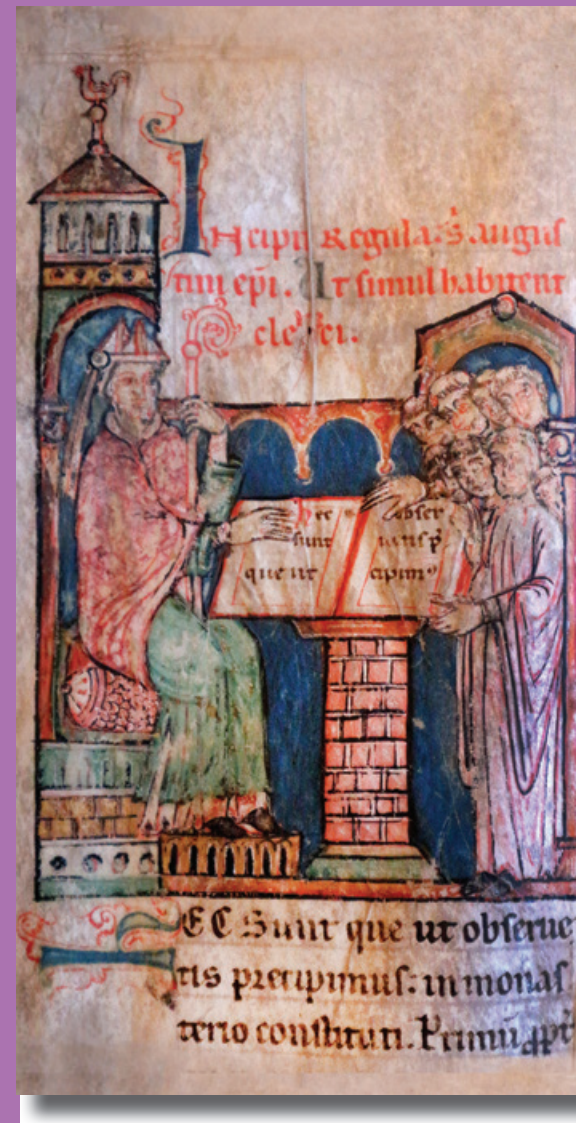 Incipit Regula. S. augus
tini epi. Ut simul habitent
clerici.
Hec
sunt
que ut
obser
uetis p
cipim9
HEC Sunt que ut obserue
tis precipimus: in monas
terio constituti. Primū ppt